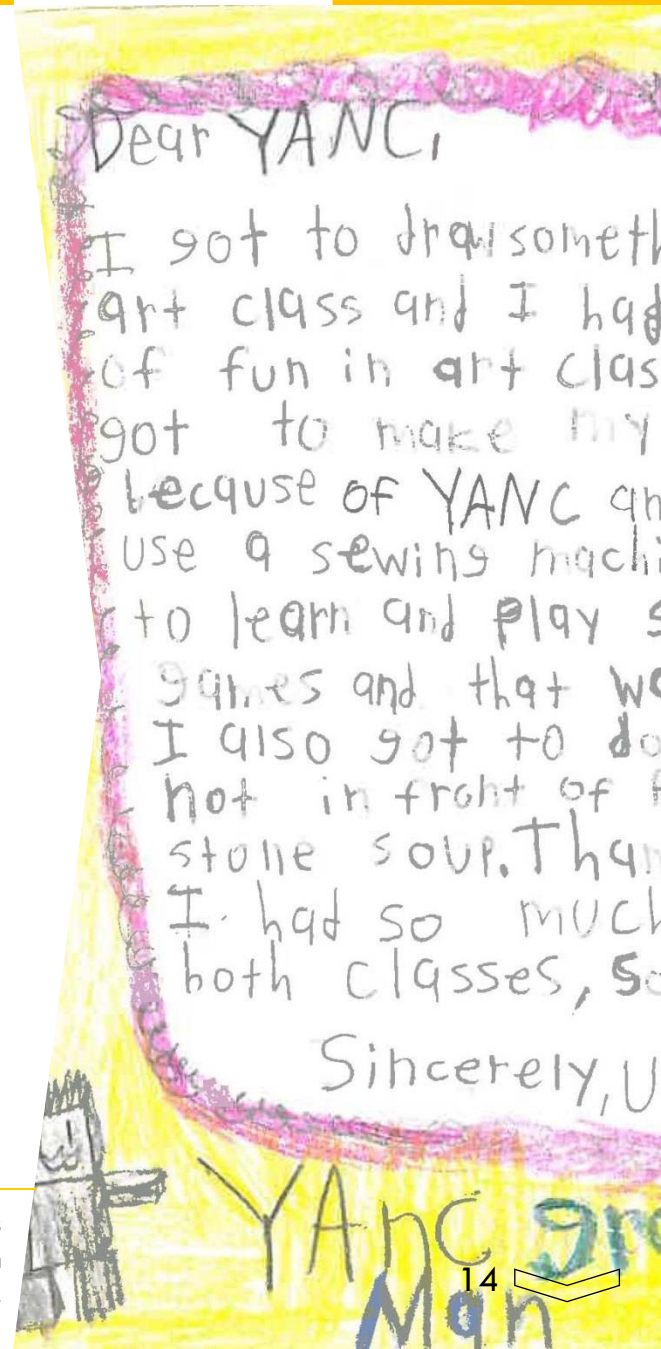 Dear YANC,
I got to draw someth
art class and I had
of fun in art clas
got to make my
because of YANC an
use a sewing machi
to learn and play s
games and that wa
I also got to do
not in front of
stone soup. Than
I had so much
both classes, so
Sincerely, U
YAnc gre
Man
14